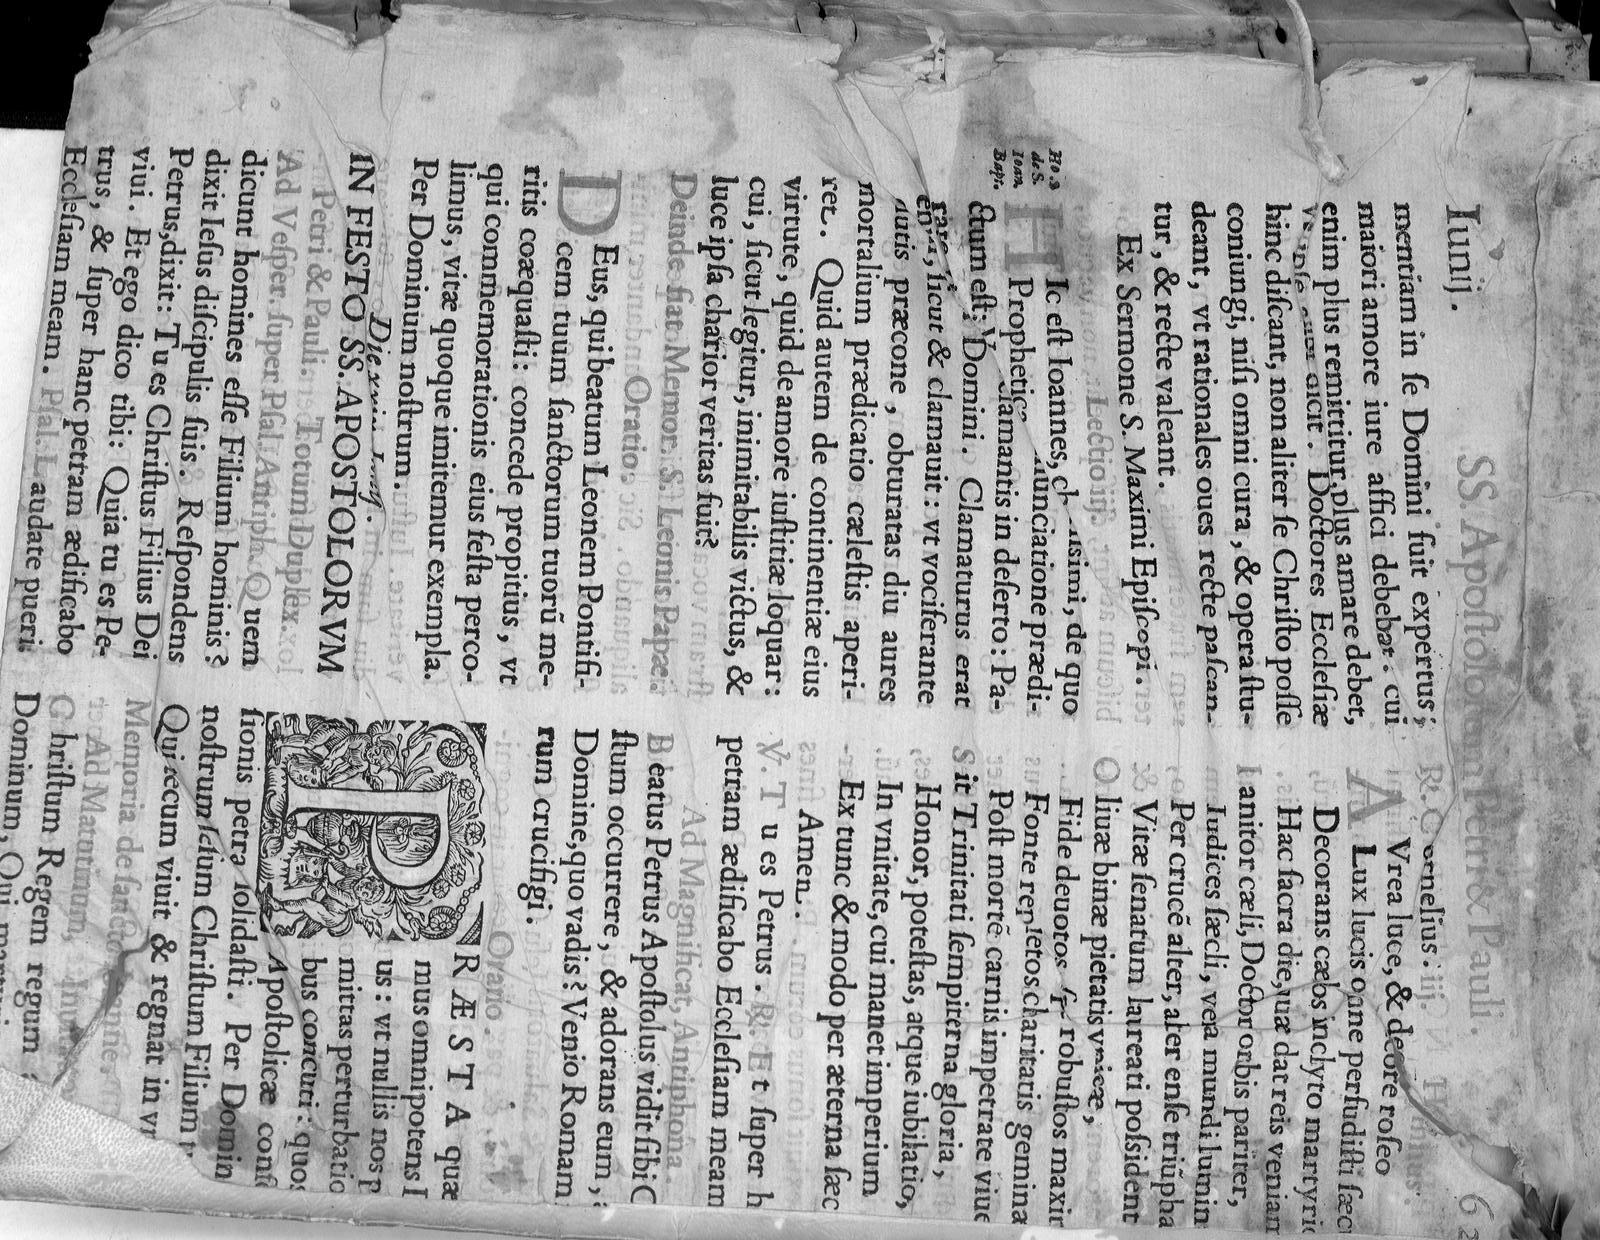 Iunij.
SS. Apoſtolorum Petri & Pauli.
mentiam in ſe Domini fuit expertus;
maiori amore iure affici debebat. cui
enim plus remittitur, plus amare debet,
dicit. Doctores Eccleſiæ
hinc diſcant, non aliter ſe Chriſto poſſe
coniungi, niſi omni cura, & opera ſtu-
deant, vt rationales oues recte paſcan-
tur, & recte valeant.
Ex Sermone S. Maximi Epiſcopi.
Lectio iij.
Ho.2
de S.
Ioan.
Bapt.
HIc eſt Ioannes, de quo
Prophetica prædi-
ctum eſt: Vox Clamantis in deſerto: Pa-
Domini. Clamaturus erat
ſicut & clamauit: vt vociferante
præcone, obturatas diu aures
mortalium prædicatio cæleſtis aperi-
ret. Quid autem de continentiæ eius
virtute, quid de amore iuſtitiæ loquar:
cui, ſicut legitur, inimitabilis victus, &
luce ipſa charior veritas fuit?
Deinde fiat Memor. S. Leonis Papæ.
Oratio.
DEus, qui beatum Leonem Pontifi-
cem tuum ſanctorum tuorũ me-
ritis coæquaſti: concede propitius, vt
qui commemorationis eius feſta perco-
limus, vitæ quoque imitemur exempla.
Per Dominum noſtrum.
Die
IN FESTO SS. APOSTOLORVM
Petri & Pauli. Totum Duplex.
Ad Veſper. ſuper Pſal. Antiph. Quem
dicunt homines eſſe Filium hominis?
dixit Ieſus diſcipulis ſuis. Reſpondens
Petrus, dixit: Tu es Chriſtus Filius Dei
viui. Et ego dico tibi: Quia tu es Pe-
trus, & ſuper hanc petram ædificabo
Eccleſiam meam. Pſal. Laudate pueri.
℟. Cornelius. iij.
AVrea luce, & decore roſeo
Lux lucis omne perfudiſti ſæc
Decorans cælos inclyto martyrio
Hac ſacra die, quæ dat reis veniam
Ianitor cæli, Doctor orbis pariter,
Iudices ſæcli, vera mundi lumin
Per crucẽ alter, alter enſe triũpha
Vitæ ſenatum laureati poſsident
Oliuæ binæ pietatis vnicæ,
Fide deuotos robuſtos maxim
Fonte repletos charitatis gemina
Poſt mortẽ carnis impetrate viue
Sit Trinitati ſempiterna gloria,
Honor, poteſtas, atque iubilatio,
In vnitate, cui manet imperium
Ex tunc & modo per æterna ſæc
Amen.
℣. Tu es Petrus. ℟. Et ſuper h
petram ædificabo Eccleſiam meam
Ad Magnificat, Antiphona.
Beatus Petrus Apoſtolus vidit ſibi C
ſtum occurrere, & adorans eum,
Domine, quo vadis? Venio Romam
rum crucifigi.
Oratio.
PRÆSTA quæ
mus omnipotens
us: vt nullis nos p
mittas perturbatio
bus concuti: quos
Apoſtolicæ conf
ſionis petra ſolidaſti. Per Domin
noſtrum Ieſum Chriſtum Filium
Qui tecum viuit & regnat in
Memoria de ſancto Ioanne.
Ad Matutinum,
Chriſtum Regem regum
Dominum, Qui